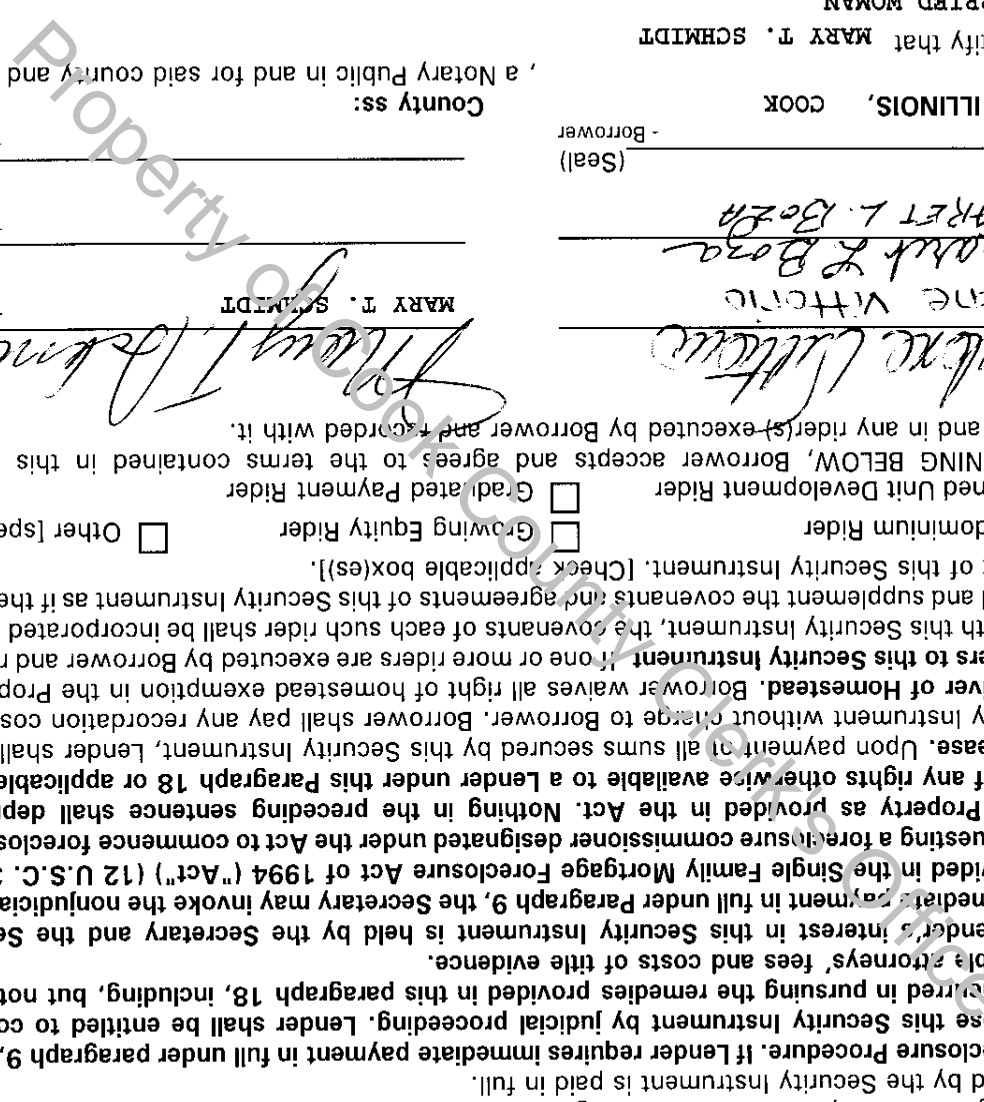 d by the Security Instrument is paid in full.
closure Procedure. If Lender requires immediate payment in full under paragraph 9,
se this Security Instrument by judicial proceeding. Lender shall be entitled to co
curred in pursuing the remedies provided in this paragraph 18, including, but not
ble attorneys' fees and costs of title evidence.
ender's interest in this Security Instrument is held by the Secretary and the Se
mediate payment in full under Paragraph 9, the Secretary may invoke the nonjudicia
vided in the Single Family Mortgage Foreclosure Act of 1994 ("Act") (12 U.S.C.
questing a foreclosure commissioner designated under the Act to commence foreclos
Property as provided in the Act. Nothing in the preceding sentence shall dep
f any rights otherwise available to a Lender under this Paragraph 18 or applicable
ease. Upon payment of all sums secured by this Security Instrument, Lender shall
y Instrument without charge to Borrower. Borrower shall pay any recordation cos
iver of Homestead. Borrower waives all right of homestead exemption in the Prop
ers to this Security Instrument. If one or more riders are executed by Borrower and r
th this Security Instrument, the covenants of each such rider shall be incorporated
d and supplement the covenants and agreements of this Security Instrument as if the
t of this Security Instrument. [Check applicable box(es)].
dominium Rider Growing Equity Rider Other [spe
ned Unit Development Rider Graduated Payment Rider
NING BELOW, Borrower accepts and agrees to the terms contained in this
and in any rider(s) executed by Borrower and recorded with it.
Mary T. Schm
ene Vittorio MARY T. SCHMIDT
garet L Boza
ARET L. BOZA
(Seal)
- Borrower
ILLINOIS, COOK County ss:
, a Notary Public in and for said county and
tify that MARY T. SCHMIDT
RRIED WOMAN
Property of Cook County Clerk's Office